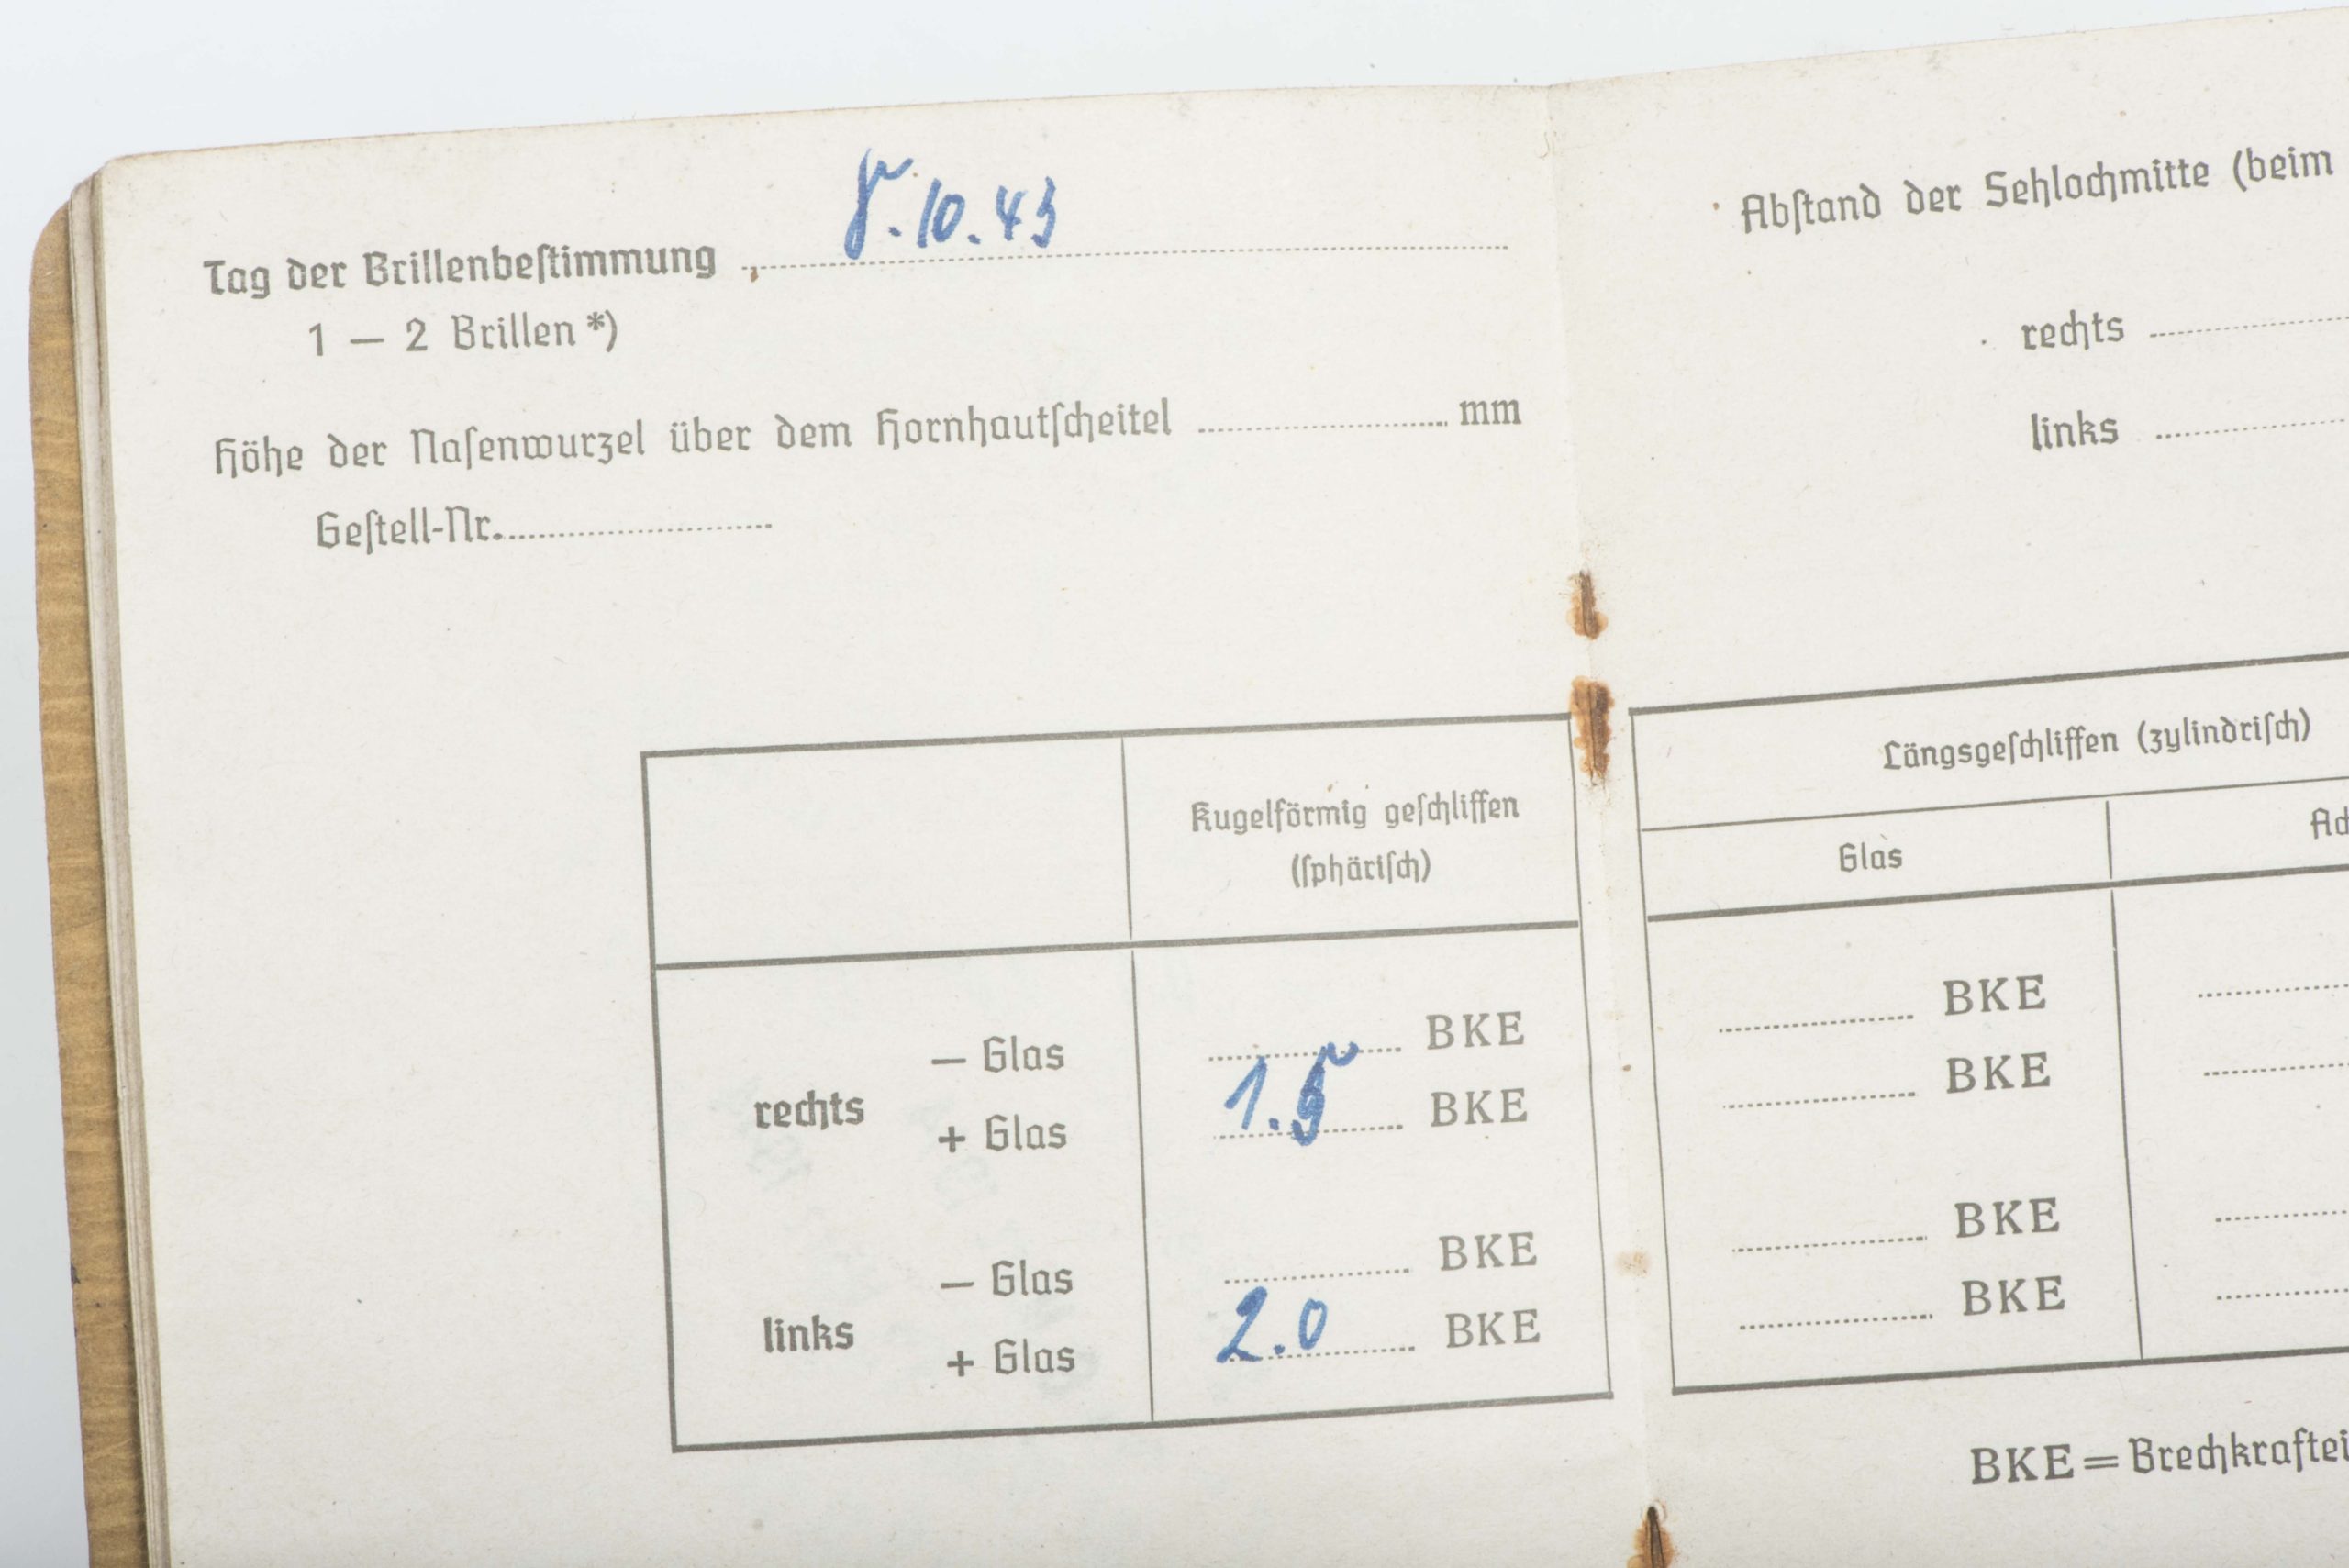 Tag der Brillenbeſtimmung 8.10.43
1 — 2 Brillen *)
Höhe der Naſenwurzel über dem Hornhautſcheitel ........ mm
Geſtell-Nr.........
Kugelförmig geſchliffen
(ſphäriſch)
rechts
— Glas ........ BKE
+ Glas 1.5 BKE
links
— Glas ........ BKE
+ Glas 2.0 BKE
Abſtand der Sehlochmitte (beim
rechts ........
links ........
Längsgeſchliffen (zylindriſch)
Glas
........ BKE
........ BKE
........ BKE
........ BKE
BKE = Brechkraftei